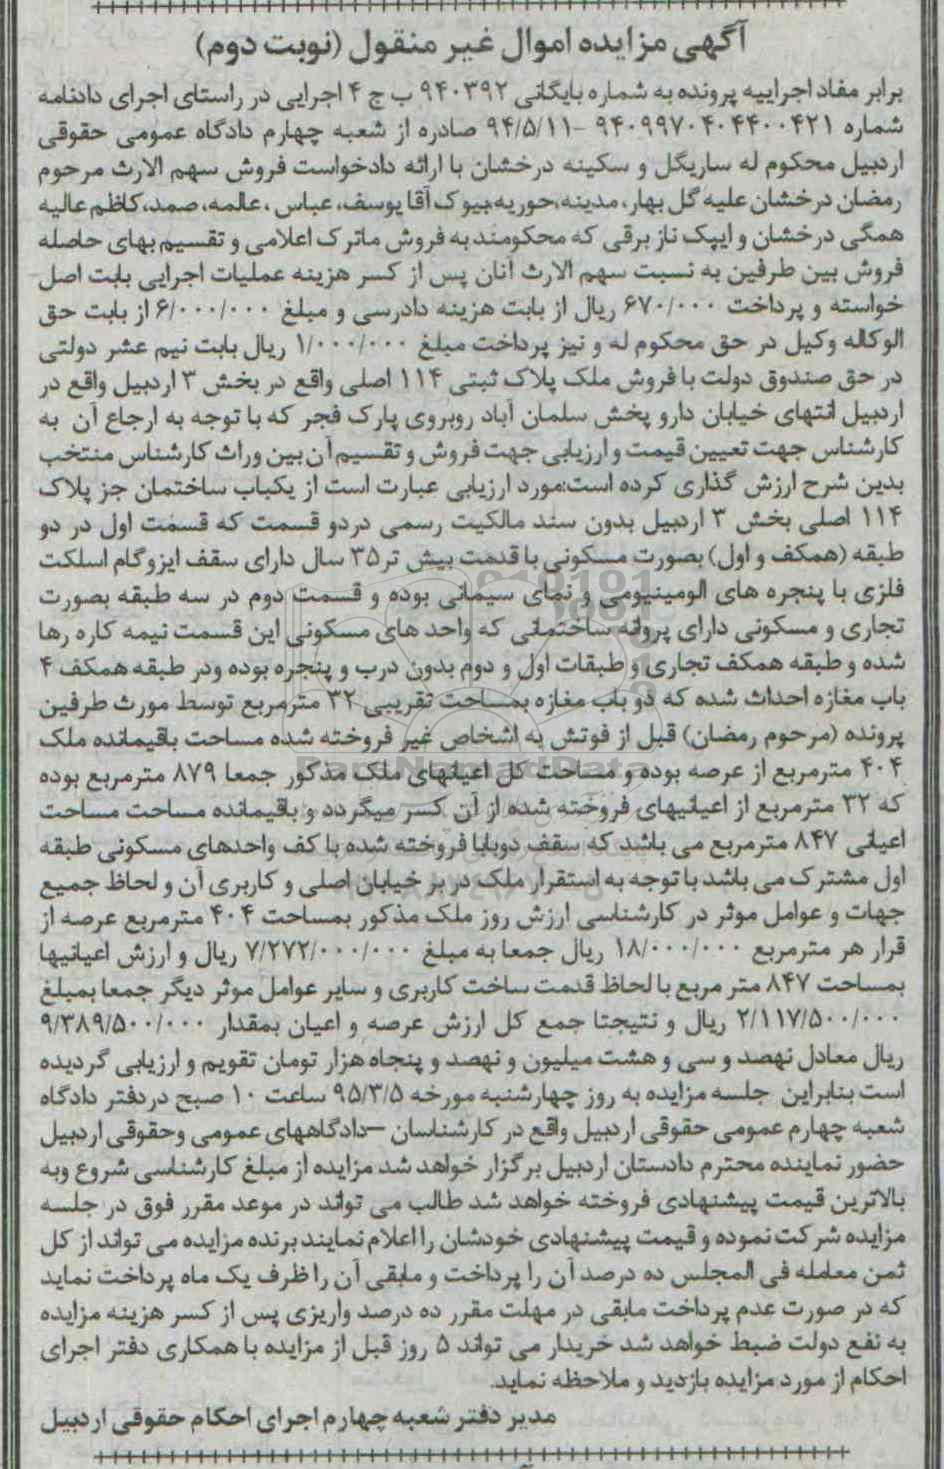 آگهی مزایده اموال غیر منقول (نوبت دوم)
برابر مفاد اجراییه پرونده به شماره بایگانی ۹۴۰۳۹۲ ب ج ۴ اجرایی در راستای اجرای دادنامه
شماره ۹۴۰۹۹۷۰۴۰۴۴۰۰۴۲۱ -۹۴/۵/۱۱ صادره از شعبه چهارم دادگاه عمومی حقوقی
اردبیل محکوم له ساریگل و سکینه درخشان با ارائه دادخواست فروش سهم الارث مرحوم
رمضان درخشان علیه گل بهار، مدینه،حوریه،بیوک آقا یوسف، عباس ، عالمه، صمد،کاظم عالیه
همگی درخشان و ایپک ناز برقی که محکومند به فروش ماترک اعلامی و تقسیم بهای حاصله
فروش بین طرفین به نسبت سهم الارث آنان پس از کسر هزینه عملیات اجرایی بابت اصل
خواسته و پرداخت ۶۷۰/۰۰۰ ریال از بابت هزینه دادرسی و مبلغ ۶/۰۰۰/۰۰۰ از بابت حق
الوکاله وکیل در حق محکوم له و نیز پرداخت مبلغ ۱/۰۰۰/۰۰۰ ریال بابت نیم عشر دولتی
در حق صندوق دولت با فروش ملک پلاک ثبتی ۱۱۴ اصلی واقع در بخش ۳ اردبیل واقع در
اردبیل انتهای خیابان دارو پخش سلمان آباد روبروی پارک فجر که با توجه به ارجاع آن به
کارشناس جهت تعیین قیمت و ارزیابی جهت فروش و تقسیم آن بین وراث کارشناس منتخب
بدین شرح ارزش گذاری کرده است:مورد ارزیابی عبارت است از یکباب ساختمان جز پلاک
۱۱۴ اصلی بخش ۳ اردبیل بدون سند مالکیت رسمی دردو قسمت که قسمت اول در دو
طبقه (همکف و اول) بصورت مسکونی با قدمت بیش تر ۳۵ سال دارای سقف ایزوگام اسلکت
فلزی با پنجره های الومینیومی و نمای سیمانی بوده و قسمت دوم در سه طبقه بصورت
تجاری و مسکونی دارای پروانه ساختمانی که واحد های مسکونی این قسمت نیمه کاره رها
شده و طبقه همکف تجاری و طبقات اول و دوم بدون درب و پنجره بوده ودر طبقه همکف ۴
باب مغازه احداث شده که دو باب مغازه بمساحت تقریبی ۳۲ مترمربع توسط مورث طرفین
پرونده (مرحوم رمضان) قبل از فوتش به اشخاص غیر فروخته شده مساحت باقیمانده ملک
۴۰۴ مترمربع از عرصه بوده و مساحت کل اعیانهای ملک مذکور جمعا ۸۷۹ مترمربع بوده
که ۳۲ مترمربع از اعیانیهای فروخته شده از آن کسر میگردد و باقیمانده مساحت مساحت
اعیانی ۸۴۷ مترمربع می باشد که سقف دوبابا فروخته شده با کف واحدهای مسکونی طبقه
اول مشترک می باشد با توجه به استقرار ملک در بر خیابان اصلی و کاربری آن و لحاظ جمیع
جهات و عوامل موثر در کارشناسی ارزش روز ملک مذکور بمساحت ۴۰۴ مترمربع عرصه از
قرار هر مترمربع ۱۸/۰۰۰/۰۰۰ ریال جمعا به مبلغ ۷/۲۷۲/۰۰۰/۰۰۰ ریال و ارزش اعیانیها
بمساحت ۸۴۷ متر مربع با لحاظ قدمت ساخت کاربری و سایر عوامل موثر دیگر جمعا بمبلغ
۲/۱۱۷/۵۰۰/۰۰۰ ریال و نتیجتا جمع کل ارزش عرصه و اعیان بمقدار ۹/۳۸۹/۵۰۰/۰۰۰
ریال معادل نهصد و سی و هشت میلیون و نهصد و پنجاه هزار تومان تقویم و ارزیابی گردیده
است بنابراین جلسه مزایده به روز چهارشنبه مورخه ۹۵/۳/۵ ساعت ۱۰ صبح دردفتر دادگاه
شعبه چهارم عمومی حقوقی اردبیل واقع در کارشناسان –دادگاههای عمومی وحقوقی اردبیل
حضور نماینده محترم دادستان اردبیل برگزار خواهد شد مزایده از مبلغ کارشناسی شروع وبه
بالاترین قیمت پیشنهادی فروخته خواهد شد طالب می تواند در موعد مقرر فوق در جلسه
مزایده شرکت نموده و قیمت پیشنهادی خودشان را اعلام نمایند برنده مزایده می تواند از کل
ثمن معامله فی المجلس ده درصد آن را پرداخت و مابقی آن را ظرف یک ماه پرداخت نماید
که در صورت عدم پرداخت مابقی در مهلت مقرر ده درصد واریزی پس از کسر هزینه مزایده
به نفع دولت ضبط خواهد شد خریدار می تواند ۵ روز قبل از مزایده با همکاری دفتر اجرای
احکام از مورد مزایده بازدید و ملاحظه نماید.
مدیر دفتر شعبه چهارم اجرای احکام حقوقی اردبیل